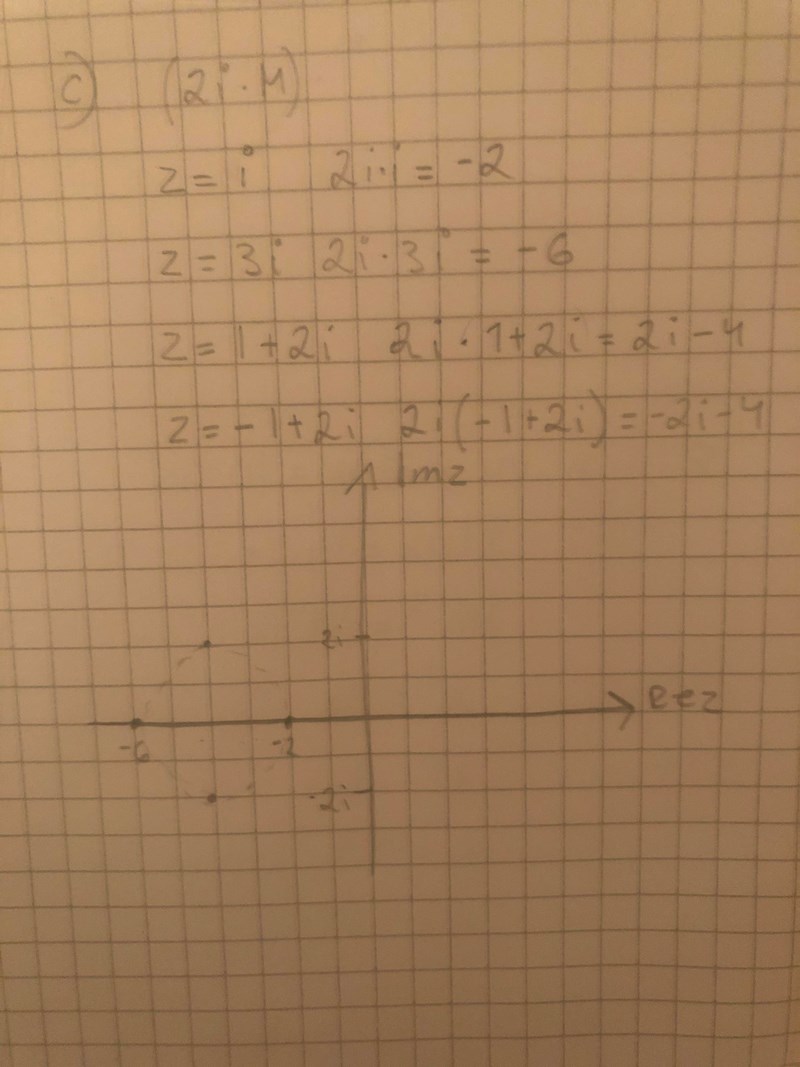 c) (2i · M)
z = i 2i·i = -2
z = 3i 2i · 3i = -6
z = 1+2i 2i · 1+2i = 2i-4
z = -1+2i 2i(-1+2i) = -2i-4
Im z
2i
Re z
-6 -2
-2i